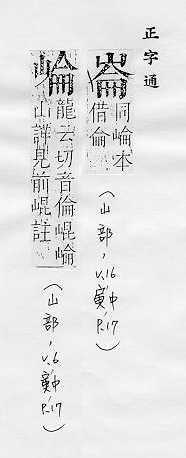 正字通
崙
同崘本
借侖
(山部, V.16 寅中 P.17)
崘
龍云切音倫崐崘
山詳見前崐註
(山部, V.6 寅中 P.17)